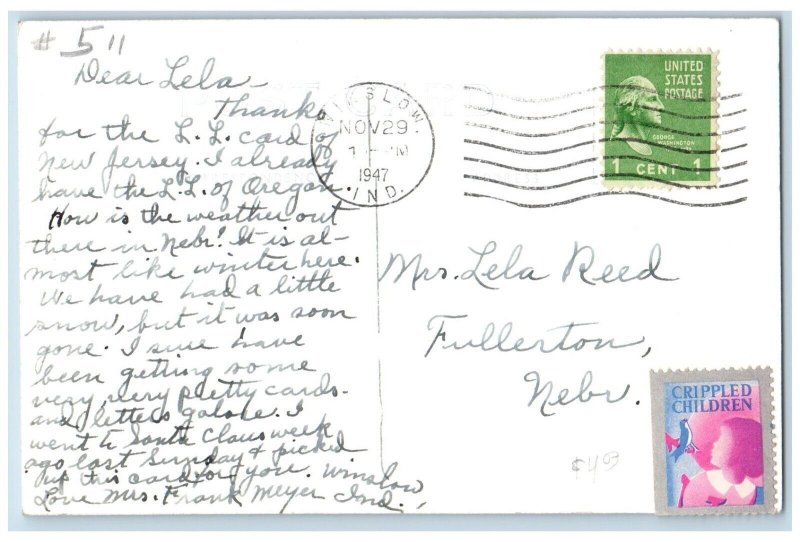 # 511
Dear Lela -
Thanks
for the L.L. card of
New Jersey. I already
have the L.L. of Oregon.
How is the weather out
there in Nebr? It is al-
most like winter here.
We have had a little
snow, but it was soon
gone. I sure have
been getting some
very, very pretty cards -
and letters galore. I
went to Santa Claus week
ago last Sunday & picked
up this card for you. Winslow
Love Mrs. Frank Meyer Ind.,
WINSLOW.
NOV 29
1947
IND.
UNITED
STATES
POSTAGE
GEORGE
WASHINGTON
1 CENT 1
Mrs. Lela Reed
Fullerton,
Nebr.
CRIPPLED
CHILDREN